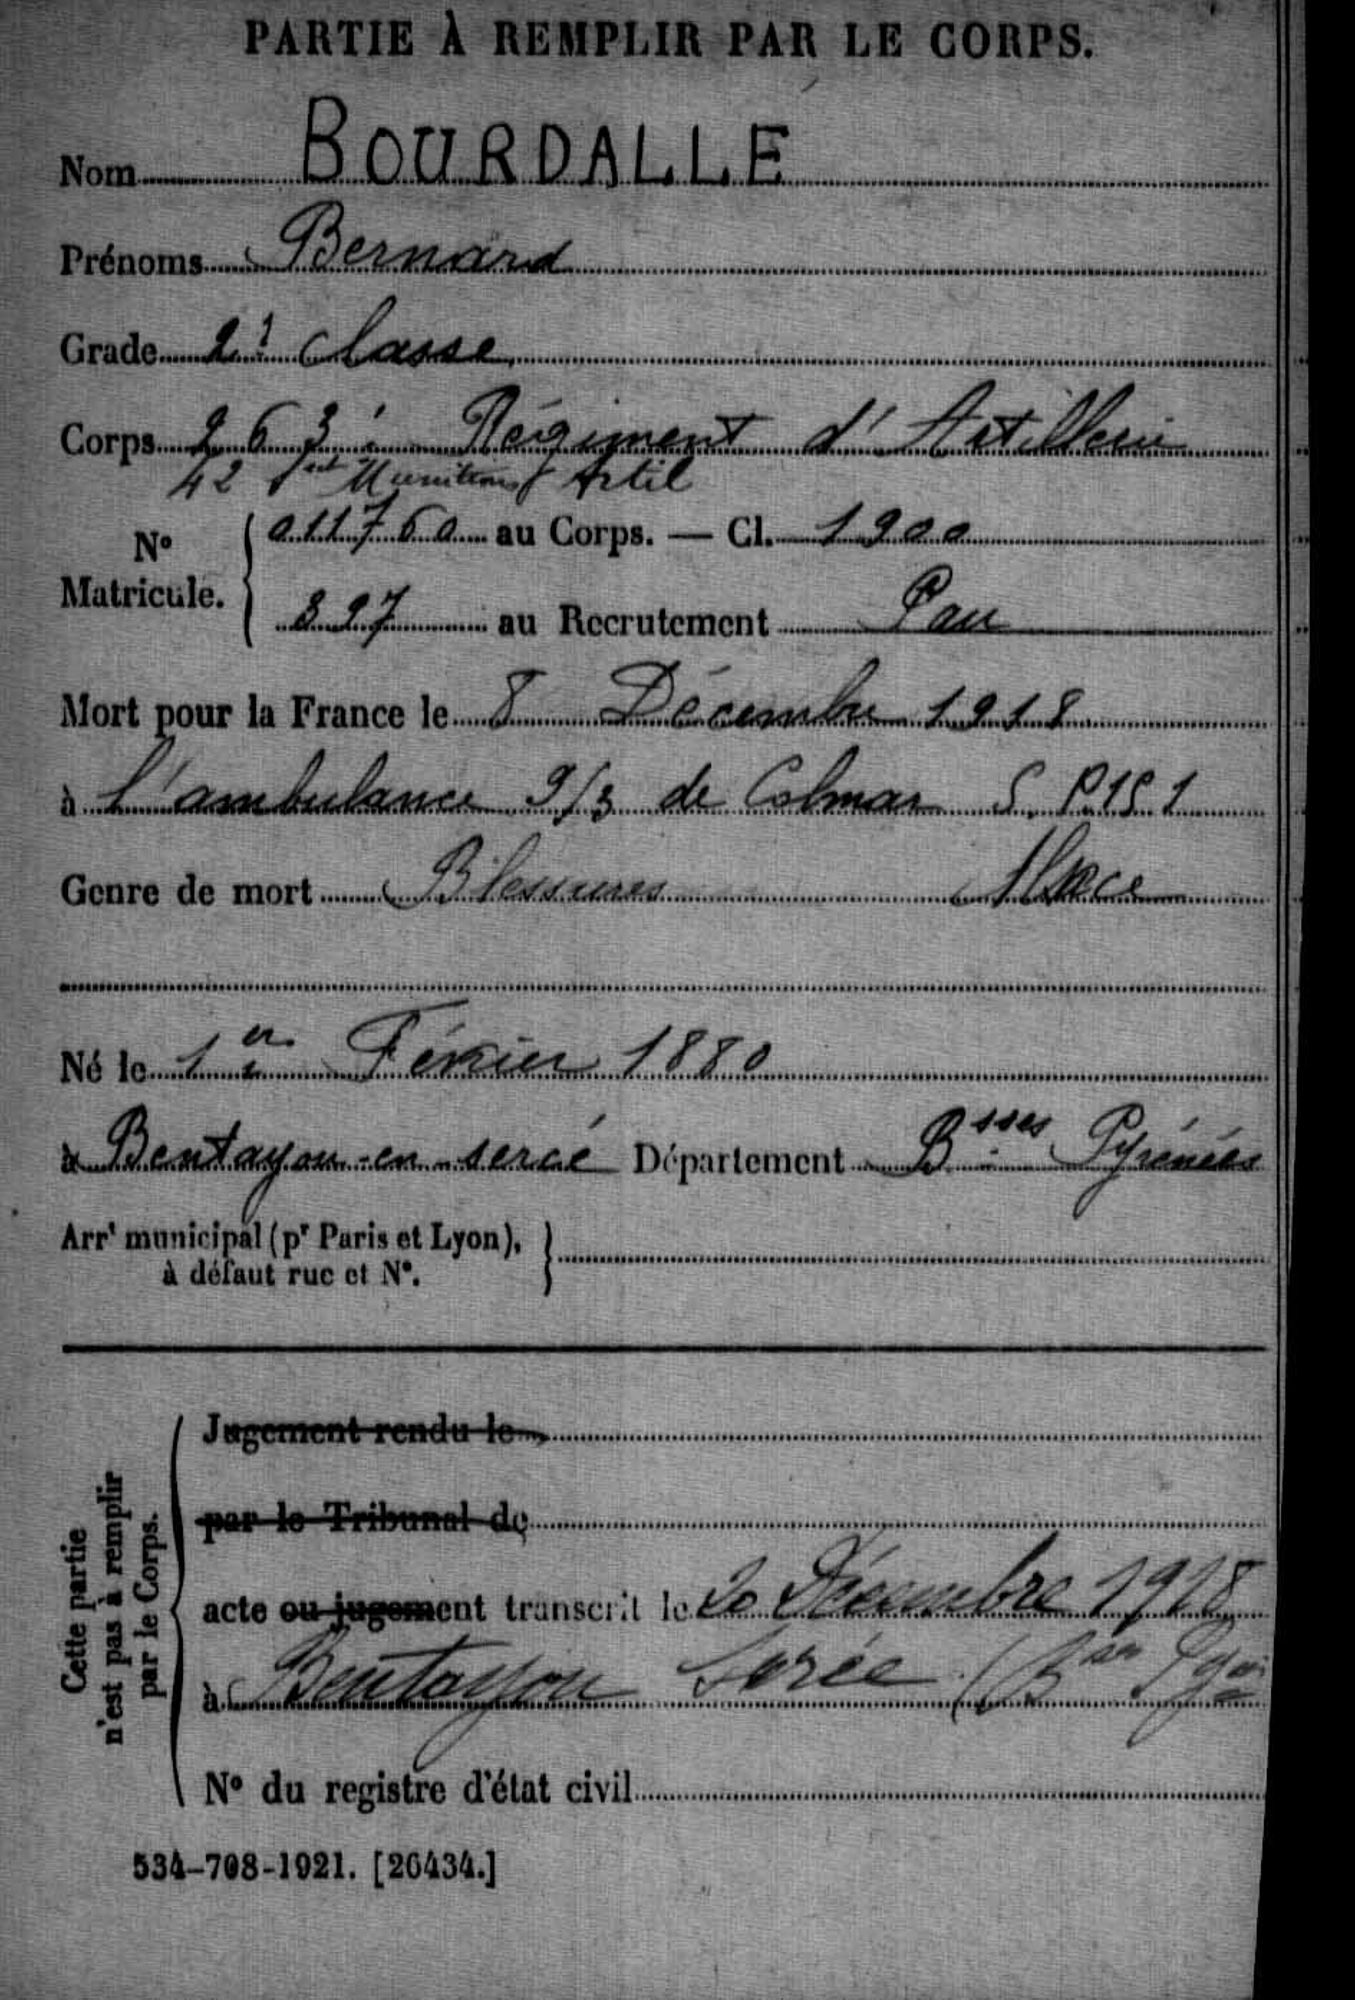 PARTIE À REMPLIR PAR LE CORPS.
Nom BOURDALLÉ
Prénoms Bernard
Grade 2e classe
Corps 263e Régiment d'Artillerie
42 Son Munitions Artil
N° Matricule. { 011760 au Corps. — Cl. 1900
897 au Recrutement Pau
Mort pour la France le 8 Décembre 1918
à l'ambulance 9/3 de Colmar S. P. 151
Genre de mort Blessures Alsace
Né le 1er Février 1880
à Bentayou-en-serée Département Bsses Pyrénées
Arrt municipal (pr Paris et Lyon), }
à défaut rue et N°.
Cette partie
n'est pas à remplir
par le Corps.
Jugement rendu le
par le Tribunal de
acte ou jugement transcrit le 20 Décembre 1918
à Bentayou Serée (Bses Pyr
N° du registre d'état civil
534-708-1921. [26434.]